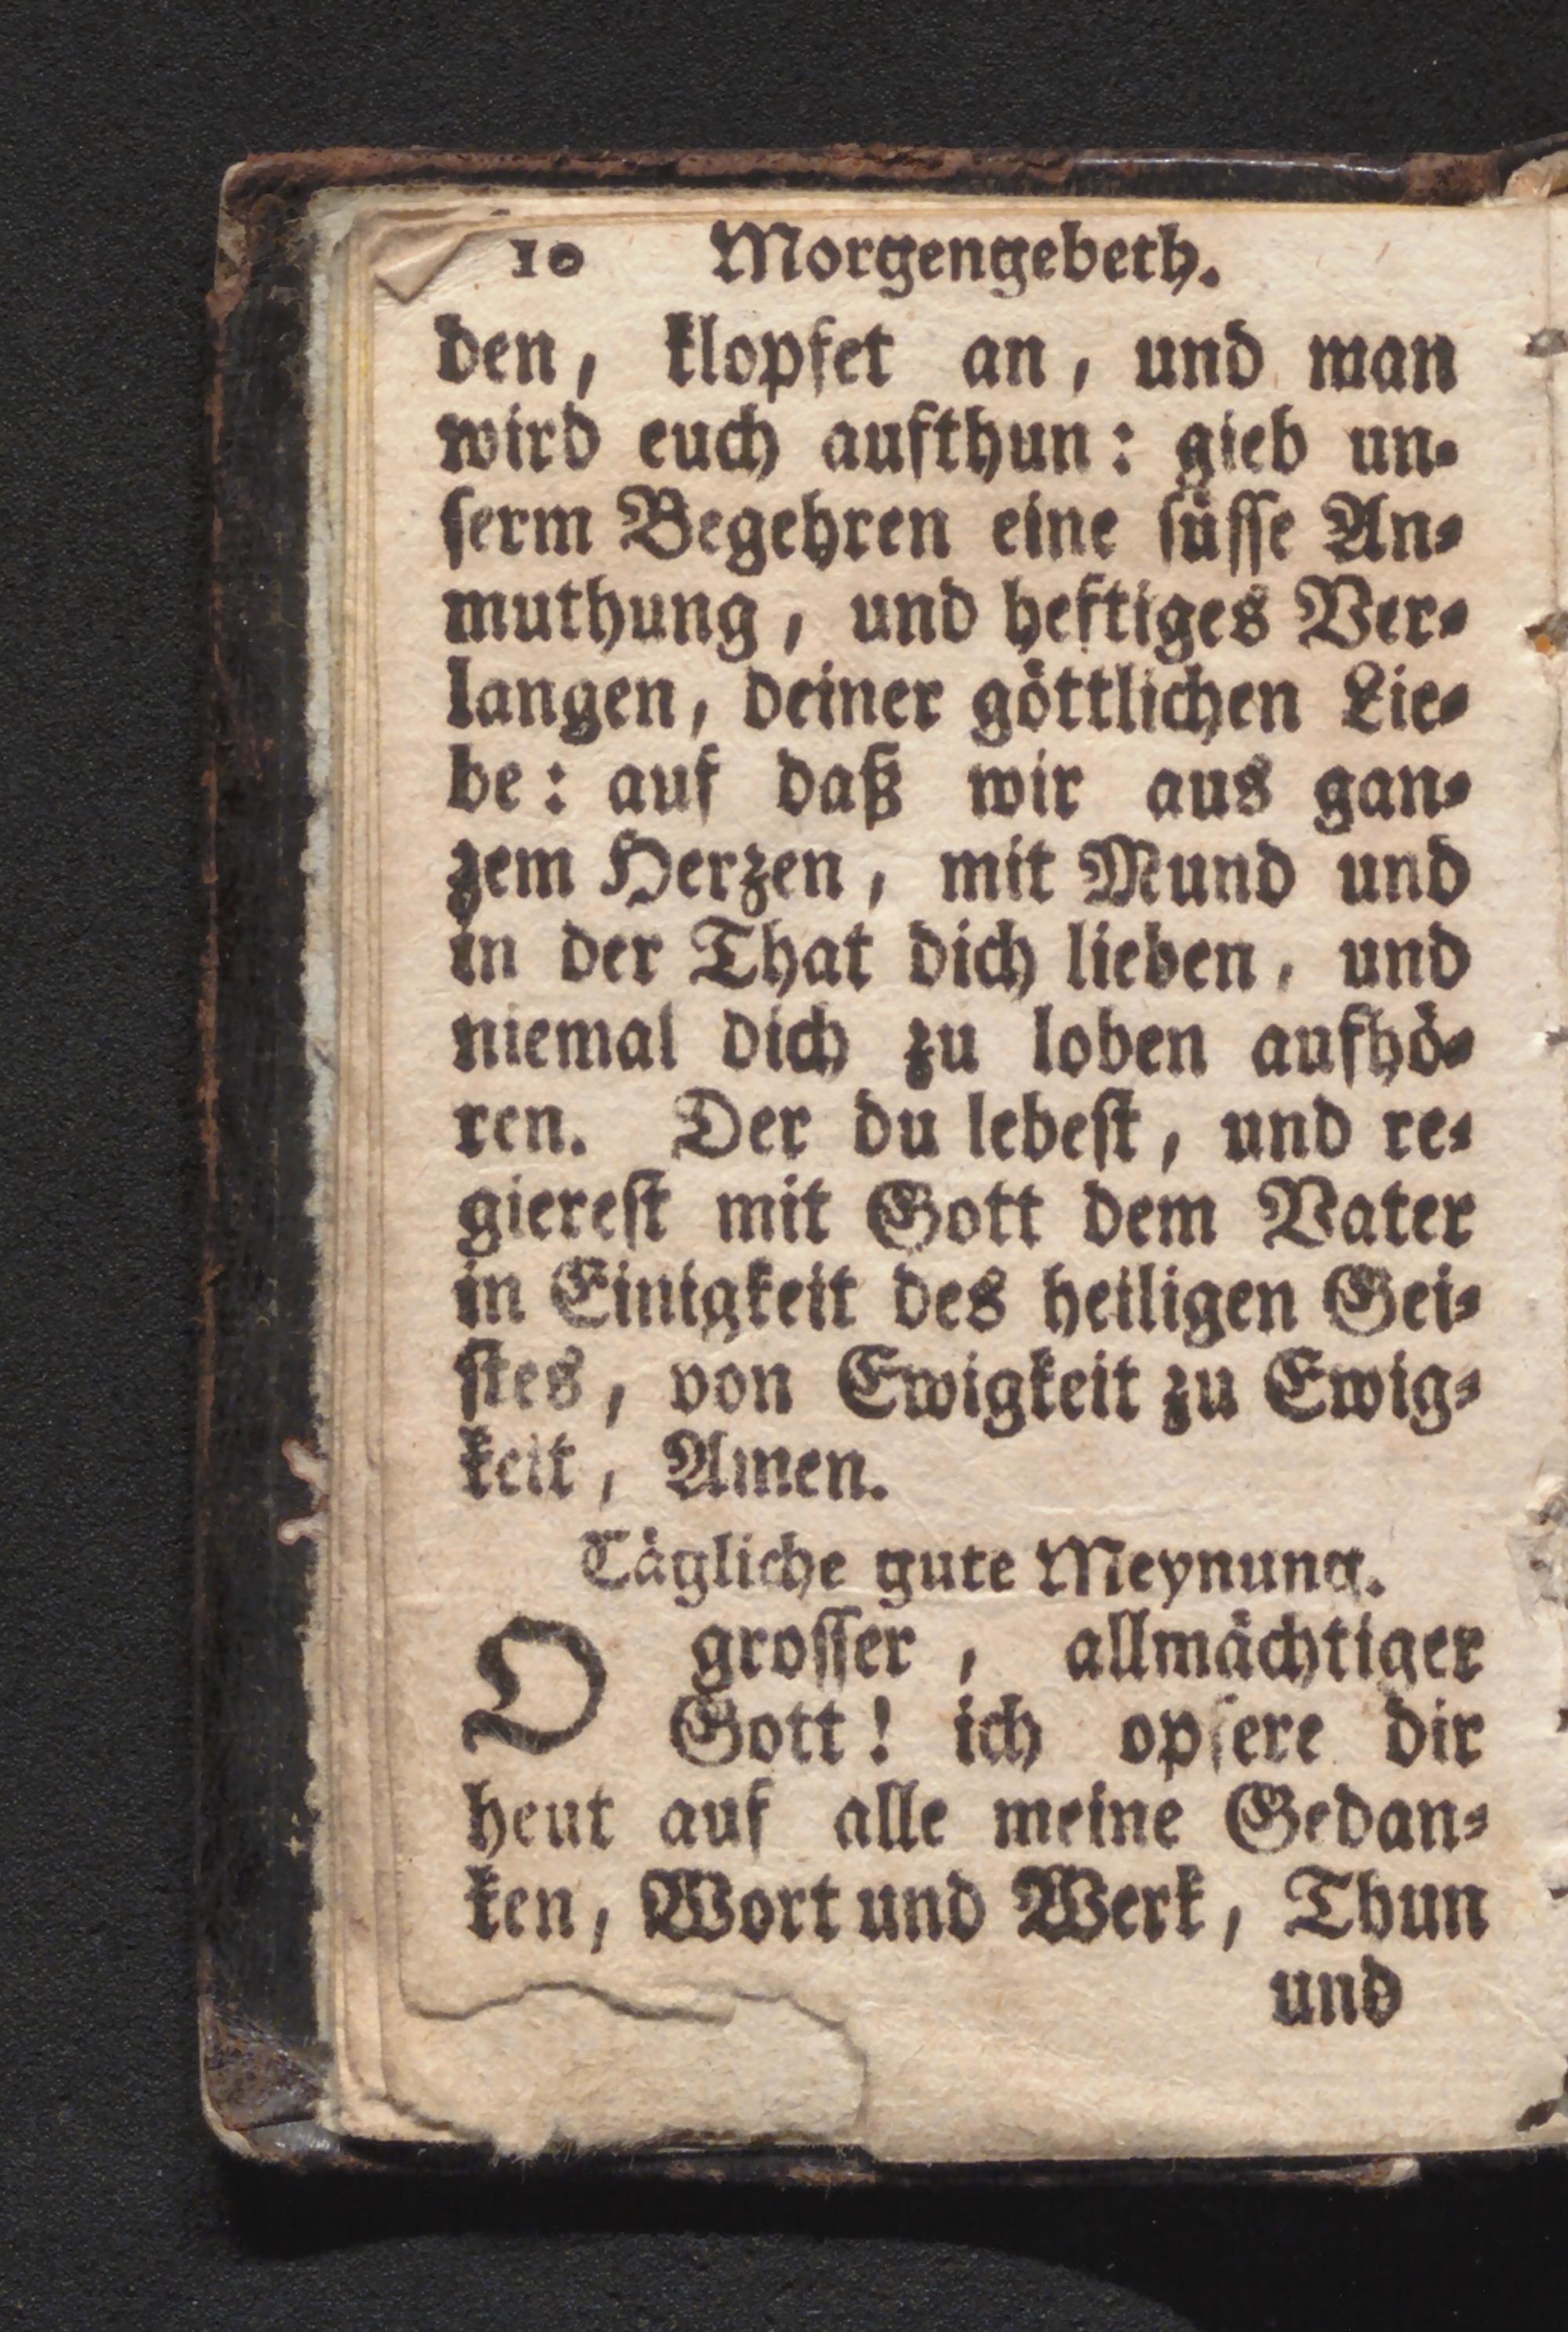 10 Morgengebeth.
den, klopfet an, und man
wird euch aufthun: gieb un-
serm Begehren eine süsse An-
muthung, und heftiges Ver-
langen, deiner göttlichen Lie-
be: auf daß wir aus gan-
zem Herzen, mit Mund und
in der That dich lieben, und
niemal dich zu loben aufhö-
ren. Der du lebest, und re-
gierest mit Gott dem Vater
in Einigkeit des heiligen Gei-
stes, von Ewigkeit zu Ewig-
keit, Amen.
Tägliche gute Meynung.
O grosser, allmächtiger
Gott! ich opfere dir
heut auf alle meine Gedan-
ken, Wort und Werk, Thun
und